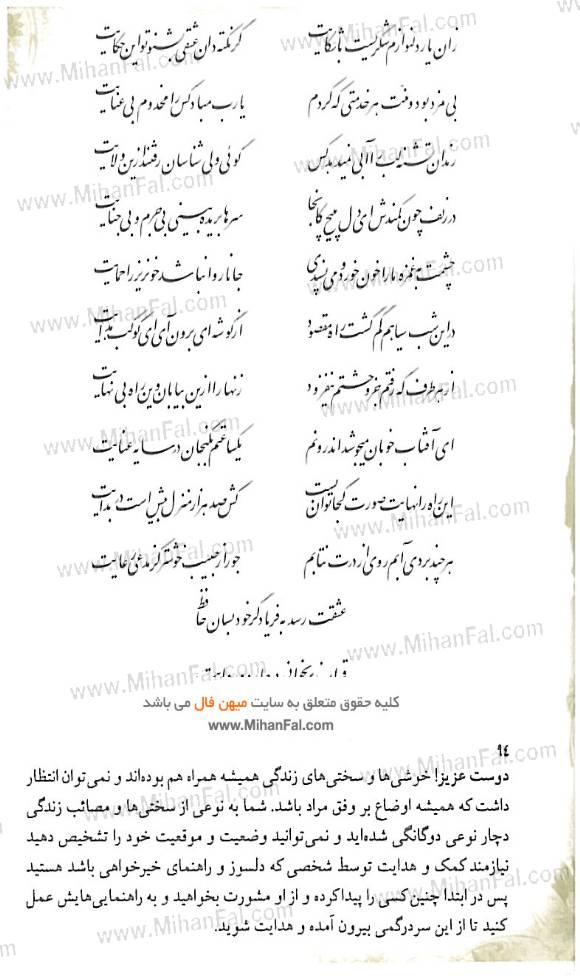 زان یار دلنوازم شکریست با شکایت گر نکته دان عشقی بشنو تو این حکایت
بی مزد بود و منت هر خدمتی که کردم یا رب مباد کس را مخدوم بی عنایت
رندان تشنه لب را آبی نمیدهد کس گوئی ولی شناسان رفتند ازین ولایت
در زلف چون کمندش ای دل مپیچ کانجا سرها بریده بینی بی جرم و بی جنایت
چشمت بغمزه ما را خون خورد و می پسندی جانا روا نباشد خونریز را حمایت
در این شب سیاهم گم گشت راه مقصود از گوشه ای برون آی ای کوکب هدایت
از هر طرف که رفتم جز وحشتم نیفزود زنهار ازین بیابان وین راه بی نهایت
ای آفتاب خوبان میجوشد اندرونم یکساعتم بگنجان در سایه عنایت
این راه را نهایت صورت کجا توان بست کش صد هزار منزل بیش است در بدایت
هر چند بردی آبم روی از درت نتابم جور از حبیب خوشتر کز مدعی رعایت
عشقت رسد به فریاد گر خود بسان حافظ
کلیه حقوق متعلق به سایت میهن فال می باشد
www.MihanFal.com
۹٤
دوست عزیز! خوشی‌ها و سختی‌های زندگی همیشه همراه هم بوده‌اند و نمی‌توان انتظار
داشت که همیشه اوضاع بر وفق مراد باشد. شما به نوعی از سختی‌ها و مصائب زندگی
دچار نوعی دوگانگی شده‌اید و نمی‌توانید وضعیت و موقعیت خود را تشخیص دهید
نیازمند کمک و هدایت توسط شخصی که دلسوز و راهنمای خیرخواهی باشد هستید
پس در ابتدا چنین کسی را پیدا کرده و از او مشورت بخواهید و به راهنمایی‌هایش عمل
کنید تا از این سردرگمی بیرون آمده و هدایت شوید.